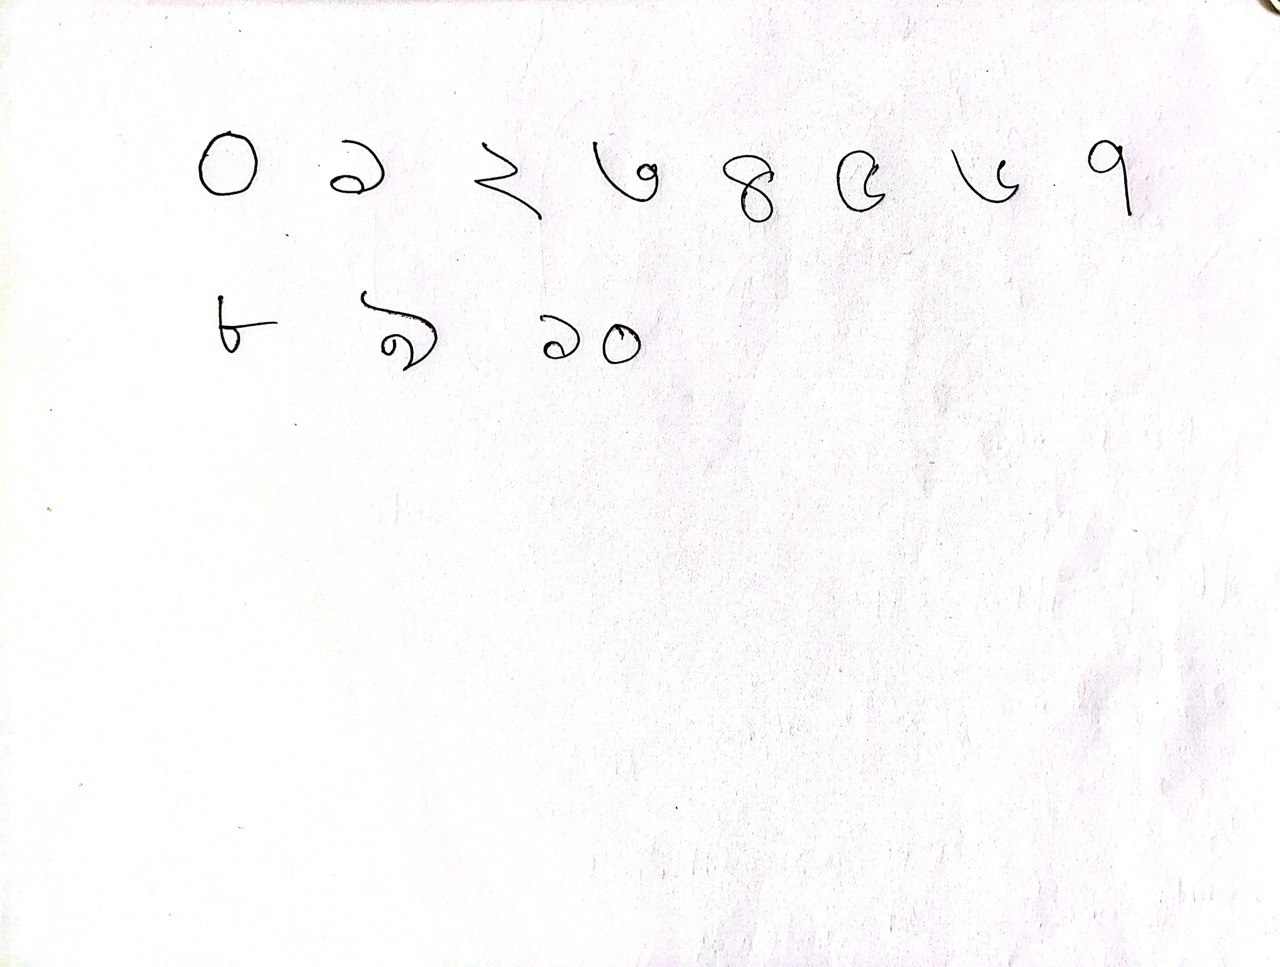 ০ ১ ২ ৩ ৪ ৫ ৬ ৭
৮ ৯ ১০